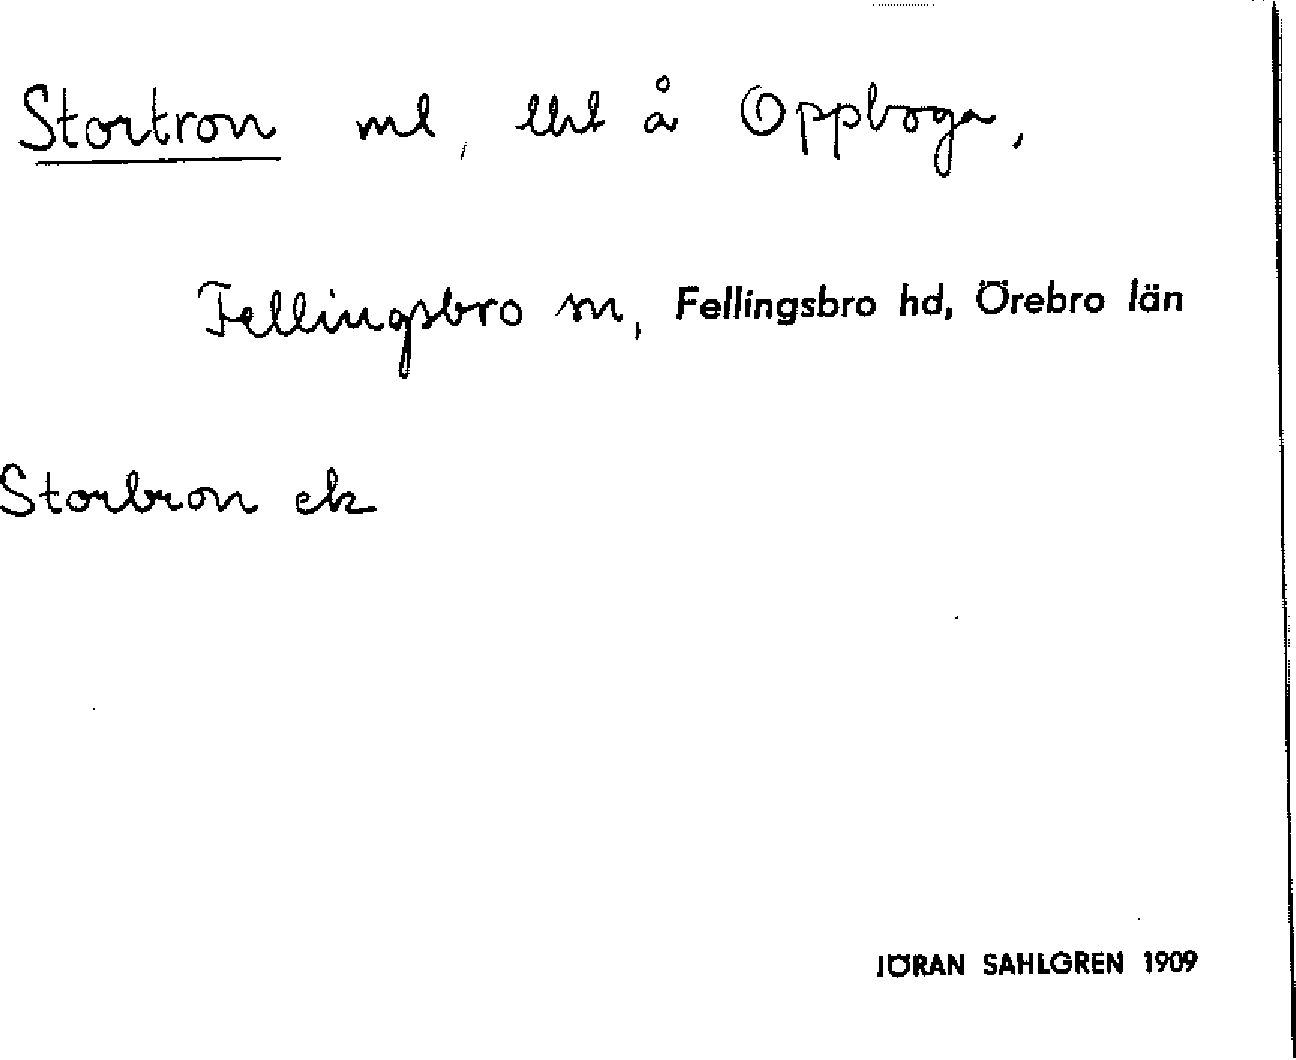 Stortron ml, lht å Oppboga,
Fellingsbro sn, Fellingsbro hd, Örebro län
Storbron ek
JÖRAN SAHLGREN 1909